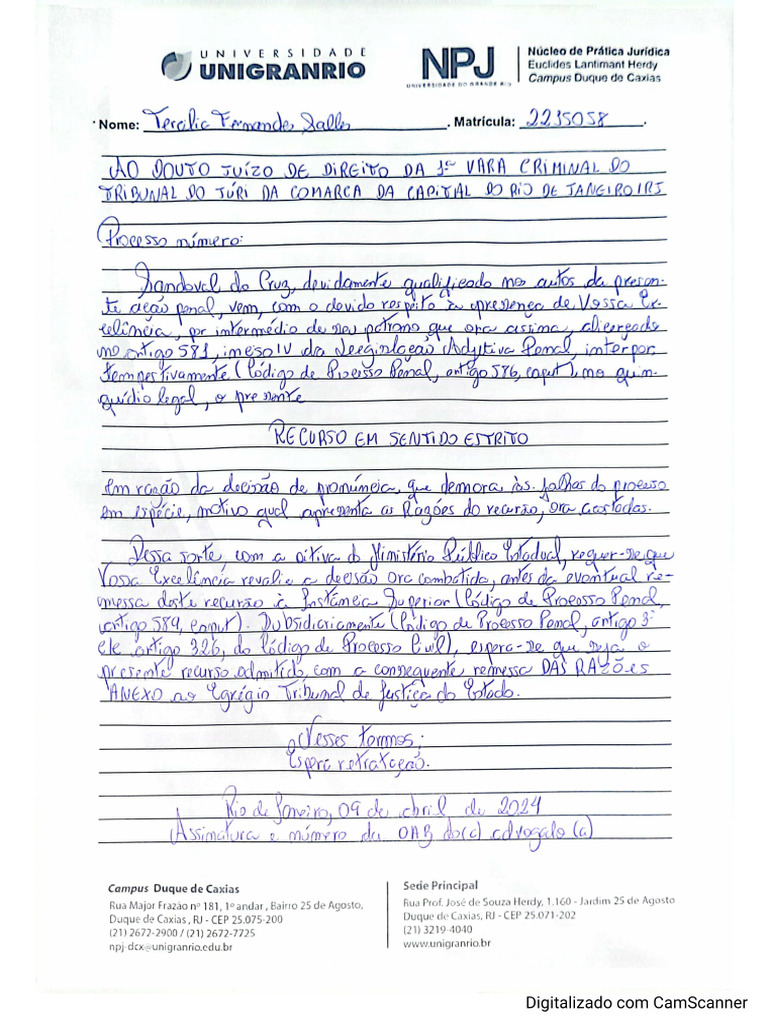 UNIVERSIDADE
UNIGRANRIO
NPJ
UNIVERSIDADE DO GRANDE RIO
Núcleo de Prática Jurídica
Euclides Lantimant Herdy
Campus Duque de Caxias
Nome: Fernandes Salles . Matrícula: 2235058 .
AO DOUTO JUÍZO DE DIREITO DA 1ª VARA CRIMINAL DO
TRIBUNAL DO JÚRI DA COMARCA DA CAPITAL DO RIO DE JANEIRO/RJ
Processo número:
Sandoval da Cruz, devidamente qualificado nos autos da presen-
te ação penal, vem, com o devido respeito à apresença de Vossa Ex-
celência, por intermédio de seu patrono que ora assina, alicerçado
no artigo 581, inciso IV da Legislação Adjetiva Penal, interpor
tempestivamente (Código de Processo Penal, artigo 586, caput), no quin-
quídio legal, o presente
RECURSO EM SENTIDO ESTRITO
em razão da decisão de pronúncia, que demora às falhas do processo
em espécie, motivo qual apresenta as Razões do recurso, ora acostadas.
Dessa sorte, com a oitiva do Ministério Público Estadual, requer-se que
Vossa Excelência revalie a decisão ora combatida, antes da eventual re-
messa deste recurso à Instância Superior (Código de Processo Penal,
artigo 589, caput). Subsidiariamente (Código de Processo Penal, artigo 3º
c/c artigo 326, do Código de Processo Civil), espera-se que seja o
presente recurso admitido, com a consequente remessa DAS RAZÕES
ANEXO ao Egrégio Tribunal de Justiça do Estado.
Nesses termos;
Espera retratação.
Rio de Janeiro, 09 de abril de 2024
Assinatura e número da OAB do(a) advogado(a)
Campus Duque de Caxias
Rua Major Frazão nº 181, 1º andar , Bairro 25 de Agosto,
Duque de Caxias , RJ - CEP 25.075-200
(21) 2672-2900 / (21) 2672-7725
npj-dcx@unigranrio.edu.br
Sede Principal
Rua Prof. José de Souza Herdy, 1.160 - Jardim 25 de Agosto
Duque de Caxias, RJ - CEP 25.071-202
(21) 3219-4040
www.unigranrio.br
Digitalizado com CamScanner